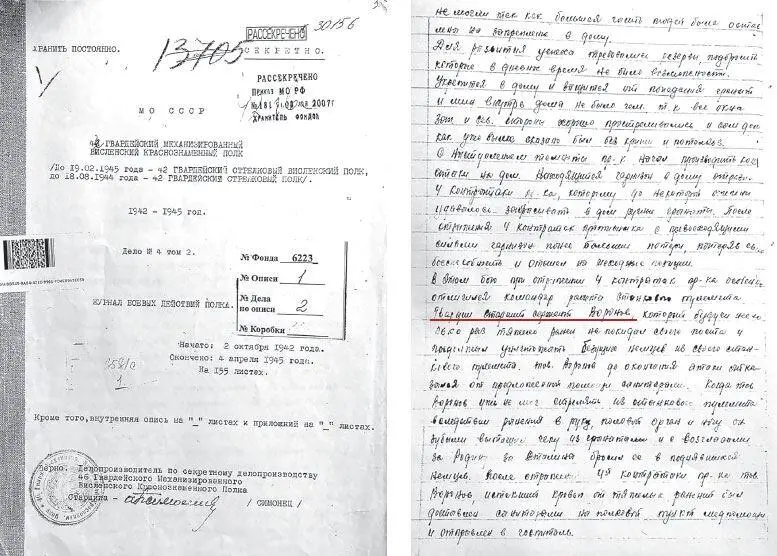 РАССЕКРЕЧЕНО 30156
ХРАНИТЬ ПОСТОЯННО.
13705
СЕКРЕТНО.
РАССЕКРЕЧЕНО
ПРИКАЗ МО РФ
2007г
ХРАНИТЕЛЬ ФОНДОВ
МО СССР
42 ГВАРДЕЙСКИЙ МЕХАНИЗИРОВАННЫЙ
ВИСЛЕНСКИЙ КРАСНОЗНАМЕННЫЙ ПОЛК
/До 19.02.1945 года - 42 ГВАРДЕЙСКИЙ СТРЕЛКОВЫЙ ВИСЛЕНСКИЙ ПОЛК,
до 18.08.1944 года - 42 ГВАРДЕЙСКИЙ СТРЕЛКОВЫЙ ПОЛК/.
1942 - 1945 год.
Дело № 4 том 2.
№ Фонда 6223
№ Описи 1
№ Дела
по описи 2
№ Коробки
ЖУРНАЛ БОЕВЫХ ДЕЙСТВИЙ ПОЛКА.
Начато: 2 октября 1942 года.
Окончено: 4 апреля 1945 года.
На 155 листах.
Кроме того, внутренняя опись на "_" листах и приложений на "_" листах.
Верно: Делопроизводитель по секретному делопроизводству
46 Гвардейского Механизированного
Висленского Краснознаменного Полка
Старшина - / СИМОНЕЦ /
не могли так как большая часть людей была остав
лена на закрепление в дому.
Для развития успеха требовались резервы, подбросить
которые в дневное время не было возможности.
Укрыться в дому и защитится от попадания гранат
и мин внутрь дома не было чем т.к все окна
зап. и сев. стороны хорошо простреливались и сам дом
как уже выше сказано был без крыши и потолков.
С пр-к начал производить кон
атаки на дом. Находящийся гарнизон в дому отразил
4 контратаки пр-ка, которому до некоторой степени
удавалось забрасывать в дом ручные гранаты. После
отражения 4 контратак противника с превосходящими
силами гарнизон понес большие потери
и отошел на исходные позиции.
В этом бою при отражении 4 контратак пр-ка особенно
отличился командир расчета станкового пулемета
Гвардии старший сержант Воронов, который будучи неско
лько раз тяжело ранен не покидал своего поста и
продолжал уничтожать бегущих немцев из своего стан-
кового пулемета. тов. Воронов до окончания атаки отка-
зался от предложенной помощи санитарами. Когда тов
Воронов уже не мог стрелять из станкового пулемета
вследствии ранения в руку, половой орган и ногу он
зубами вытащил чеку из гранаты и с возгласами
за Родину за Сталина бросил ее в поднявшихся
немцев. После отражения 4й контратаки пр-ка тов.
Воронов, истекший кровью от тяжелых ранений был
доставлен санитарами на полковой пункт медпомощи
и отправлен в госпиталь.